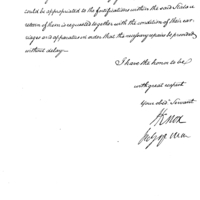 could be appropriated to the fortifications within the said State a
return of them is requested together with the condition of their car-
riages and apparatus in order that the necessary repairs be provided
without delay.
I have the honor to be
with great respect
Your obed. Servant
H Knox
Secy of War